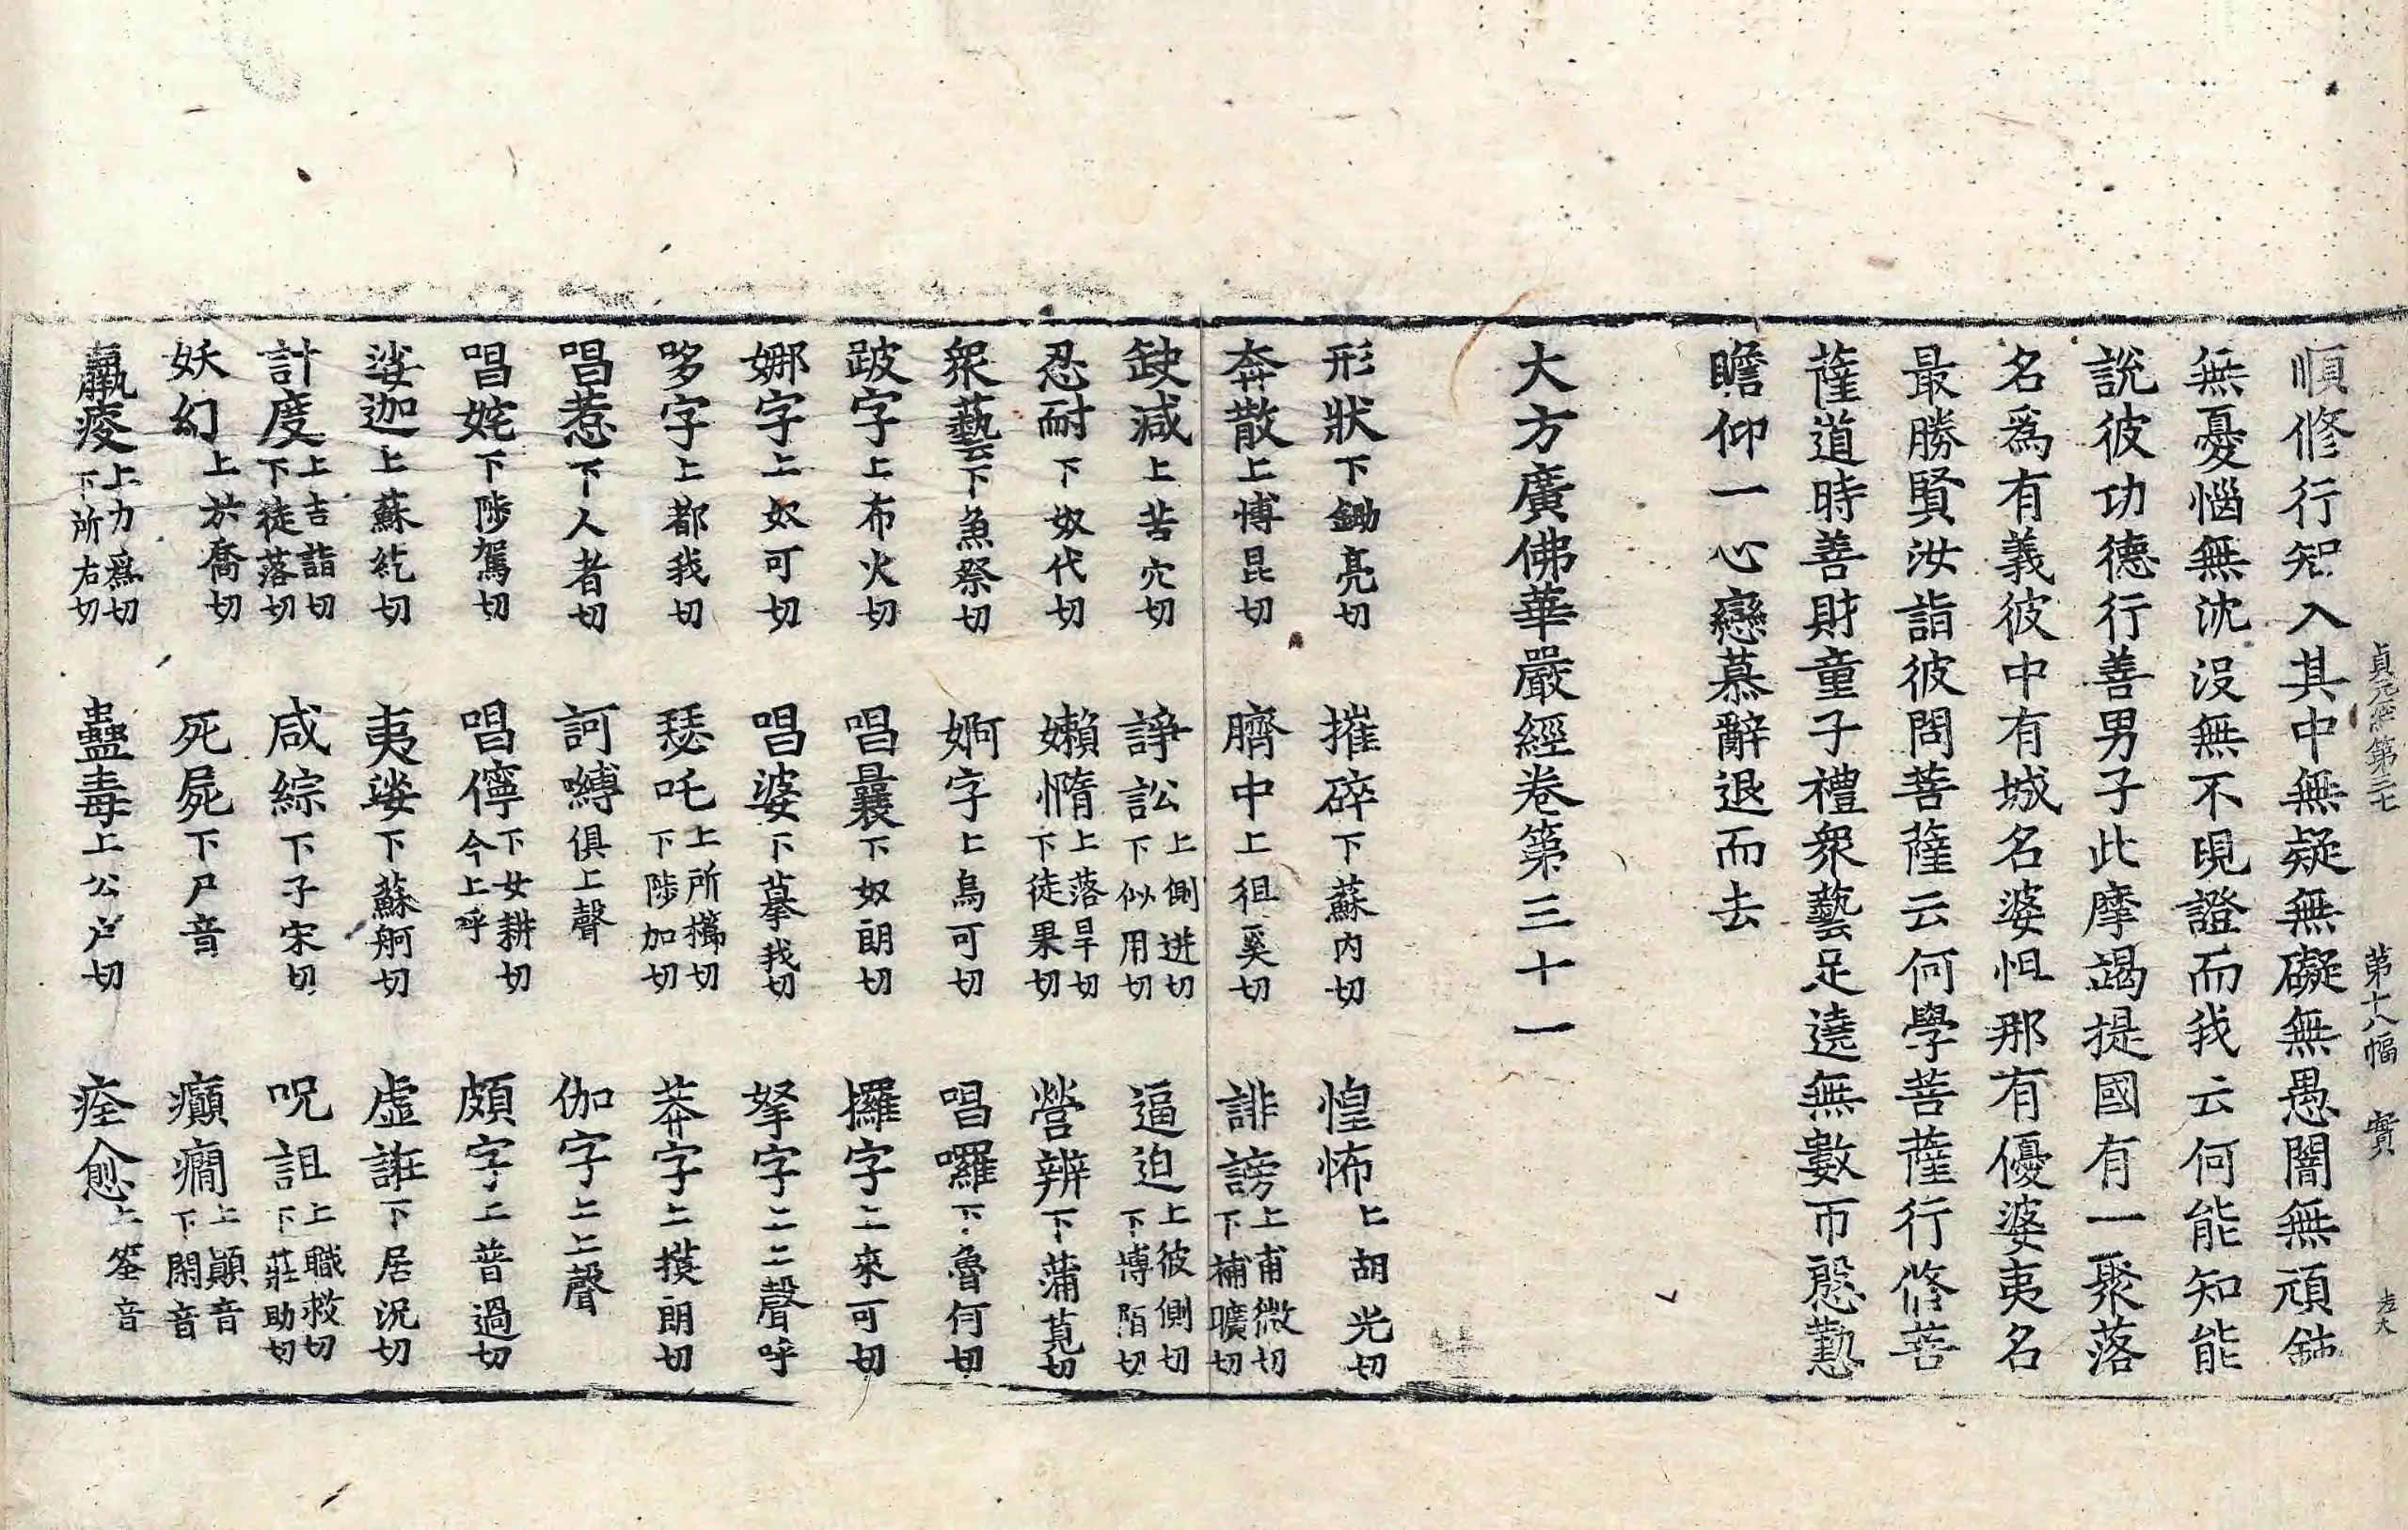 貞元經第三十七　第十八幅　實
順修行智入其中無疑無礙無愚闇無頑
無憂惱無沈沒無不現證而我云何能知能
說彼功德行善男子此摩竭提國有一聚落
名爲有義彼中有城名婆怛那有優婆夷名
最勝賢汝詣彼問菩薩云何學菩薩行修菩
薩道時善財童子禮衆藝足遶無數帀慇懃
瞻仰一心戀慕辭退而去
大方廣佛華嚴經卷第三十一
形狀下鋤亮切　摧碎下蘇內切　惶怖上胡光切
奔散上博昆切　臍中上徂奚切　誹謗上甫微切下補曠切
缺減上苦穴切　諍訟上側迸切下似用切　逼迫上彼側切下博陌切
忍耐下奴代切　嬾惰上落旱切下徒果切　營辨下蒲莧切
衆藝下魚祭切　婀字上烏可切　唱囉下魯何切
跛字上布火切　唱曩下奴朗切　攞字上來可切
娜字上奴可切　唱婆下摹我切　拏字上上聲呼
哆字上都我切　瑟吒上所櫛切下陟加切　莽字上摸朗切
唱惹下人者切　訶嚩俱上聲　伽字上上聲
唱姹下陟駕切　唱儜下女耕切今上呼　頗字上普過切
娑迦上蘇紇切　夷娑下蘇舸切　虛誑下居況切
計度上吉詣切下徒落切　咸綜下子宋切　呪詛上職救切下莊助切
妖幻上於喬切　死屍下尸音　癲癎上顛音下閑音
羸痩上力爲切下所右切　蠱毒上公戶切　痊愈上筌音